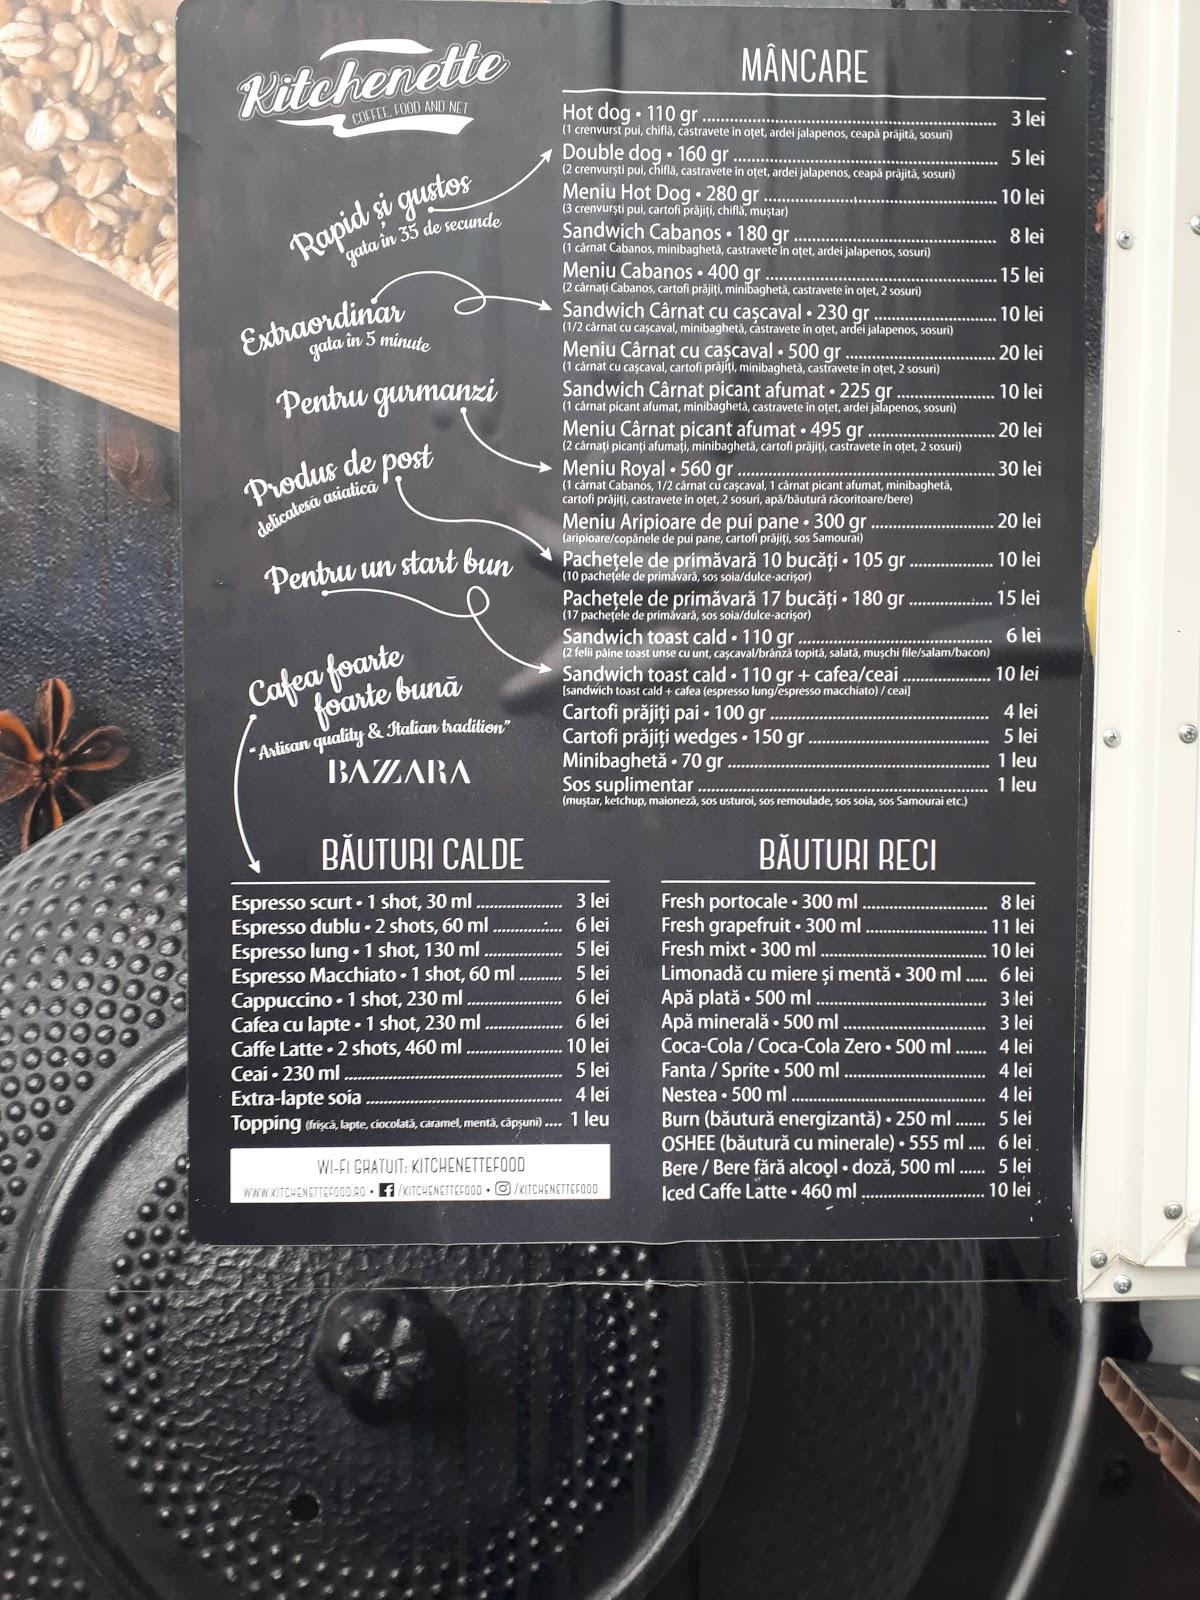 Kitchenette
COFFEE, FOOD AND NET
Rapid și gustos
gata în 35 de secunde
Extraordinar
gata în 5 minute
Pentru gurmanzi
Produs de post
delicatesă asiatică
Pentru un start bun
Cafea foarte
foarte bună
"Artisan quality & Italian tradition"
BAZZARA
MÂNCARE
Hot dog • 110 gr ........ 3 lei
(1 crenvurst pui, chiflă, castravete in oțet, ardei jalapenos, ceapă prăjită, sosuri)
Double dog • 160 gr ........ 5 lei
(2 crenvurști pui, chiflă, castravete in oțet, ardei jalapenos, ceapă prăjită, sosuri)
Meniu Hot Dog • 280 gr ........ 10 lei
(3 crenvurști pui, cartofi prăjiți, chiflă, muștar)
Sandwich Cabanos • 180 gr ........ 8 lei
(1 cârnat Cabanos, minibaghetă, castravete in oțet, ardei jalapenos, sosuri)
Meniu Cabanos • 400 gr ........ 15 lei
(2 cârnați Cabanos, cartofi prăjiți, minibaghetă, castravete in oțet, 2 sosuri)
Sandwich Cârnat cu cașcaval • 230 gr ........ 10 lei
(1/2 cârnat cu cașcaval, minibaghetă, castravete in oțet, ardei jalapenos, sosuri)
Meniu Cârnat cu cașcaval • 500 gr ........ 20 lei
(1 cârnat cu cașcaval, cartofi prăjiți, minibaghetă, castravete in oțet, 2 sosuri)
Sandwich Cârnat picant afumat • 225 gr ........ 10 lei
(1 cârnat picant afumat, minibaghetă, castravete in oțet, ardei jalapenos, sosuri)
Meniu Cârnat picant afumat • 495 gr ........ 20 lei
(2 cârnați picanți afumați, minibaghetă, cartofi prăjiți, castravete in oțet, 2 sosuri)
Meniu Royal • 560 gr ........ 30 lei
(1 cârnat Cabanos, 1/2 cârnat cu cașcaval, 1 cârnat picant afumat, minibaghetă,
cartofi prăjiți, castravete in oțet, 2 sosuri, apă/băutură răcoritoare/bere)
Meniu Aripioare de pui pane • 300 gr ........ 20 lei
(aripioare/copănele de pui pane, cartofi prăjiți, sos Samourai)
Pachețele de primăvară 10 bucăți • 105 gr ........ 10 lei
(10 pachețele de primăvară, sos soia/dulce-acrișor)
Pachețele de primăvară 17 bucăți • 180 gr ........ 15 lei
(17 pachețele de primăvară, sos soia/dulce-acrișor)
Sandwich toast cald • 110 gr ........ 6 lei
(2 felii pâine toast unse cu unt, cașcaval/brânză topită, salată, mușchi file/salam/bacon)
Sandwich toast cald • 110 gr + cafea/ceai ........ 10 lei
[sandwich toast cald + cafea (espresso lung/espresso macchiato) / ceai]
Cartofi prăjiți pai • 100 gr ........ 4 lei
Cartofi prăjiți wedges • 150 gr ........ 5 lei
Minibaghetă • 70 gr ........ 1 leu
Sos suplimentar ........ 1 leu
(muștar, ketchup, maioneză, sos usturoi, sos remoulade, sos soia, sos Samourai etc.)
BĂUTURI CALDE
Espresso scurt • 1 shot, 30 ml ........ 3 lei
Espresso dublu • 2 shots, 60 ml ........ 6 lei
Espresso lung • 1 shot, 130 ml ........ 5 lei
Espresso Macchiato • 1 shot, 60 ml ........ 5 lei
Cappuccino • 1 shot, 230 ml ........ 6 lei
Cafea cu lapte • 1 shot, 230 ml ........ 6 lei
Caffe Latte • 2 shots, 460 ml ........ 10 lei
Ceai • 230 ml ........ 5 lei
Extra-lapte soia ........ 4 lei
Topping (frișcă, lapte, ciocolată, caramel, mentă, căpșuni) .... 1 leu
WI-FI GRATUIT: KITCHENETTEFOOD
WWW.KITCHENETTEFOOD.RO • /KITCHENETTEFOOD • /KITCHENETTEFOOD
BĂUTURI RECI
Fresh portocale • 300 ml ........ 8 lei
Fresh grapefruit • 300 ml ........ 11 lei
Fresh mixt • 300 ml ........ 10 lei
Limonadă cu miere și mentă • 300 ml ..... 6 lei
Apă plată • 500 ml ........ 3 lei
Apă minerală • 500 ml ........ 3 lei
Coca-Cola / Coca-Cola Zero • 500 ml ....... 4 lei
Fanta / Sprite • 500 ml ........ 4 lei
Nestea • 500 ml ........ 4 lei
Burn (băutură energizantă) • 250 ml ....... 5 lei
OSHEE (băutură cu minerale) • 555 ml .... 6 lei
Bere / Bere fără alcool • doză, 500 ml ...... 5 lei
Iced Caffe Latte • 460 ml ........ 10 lei